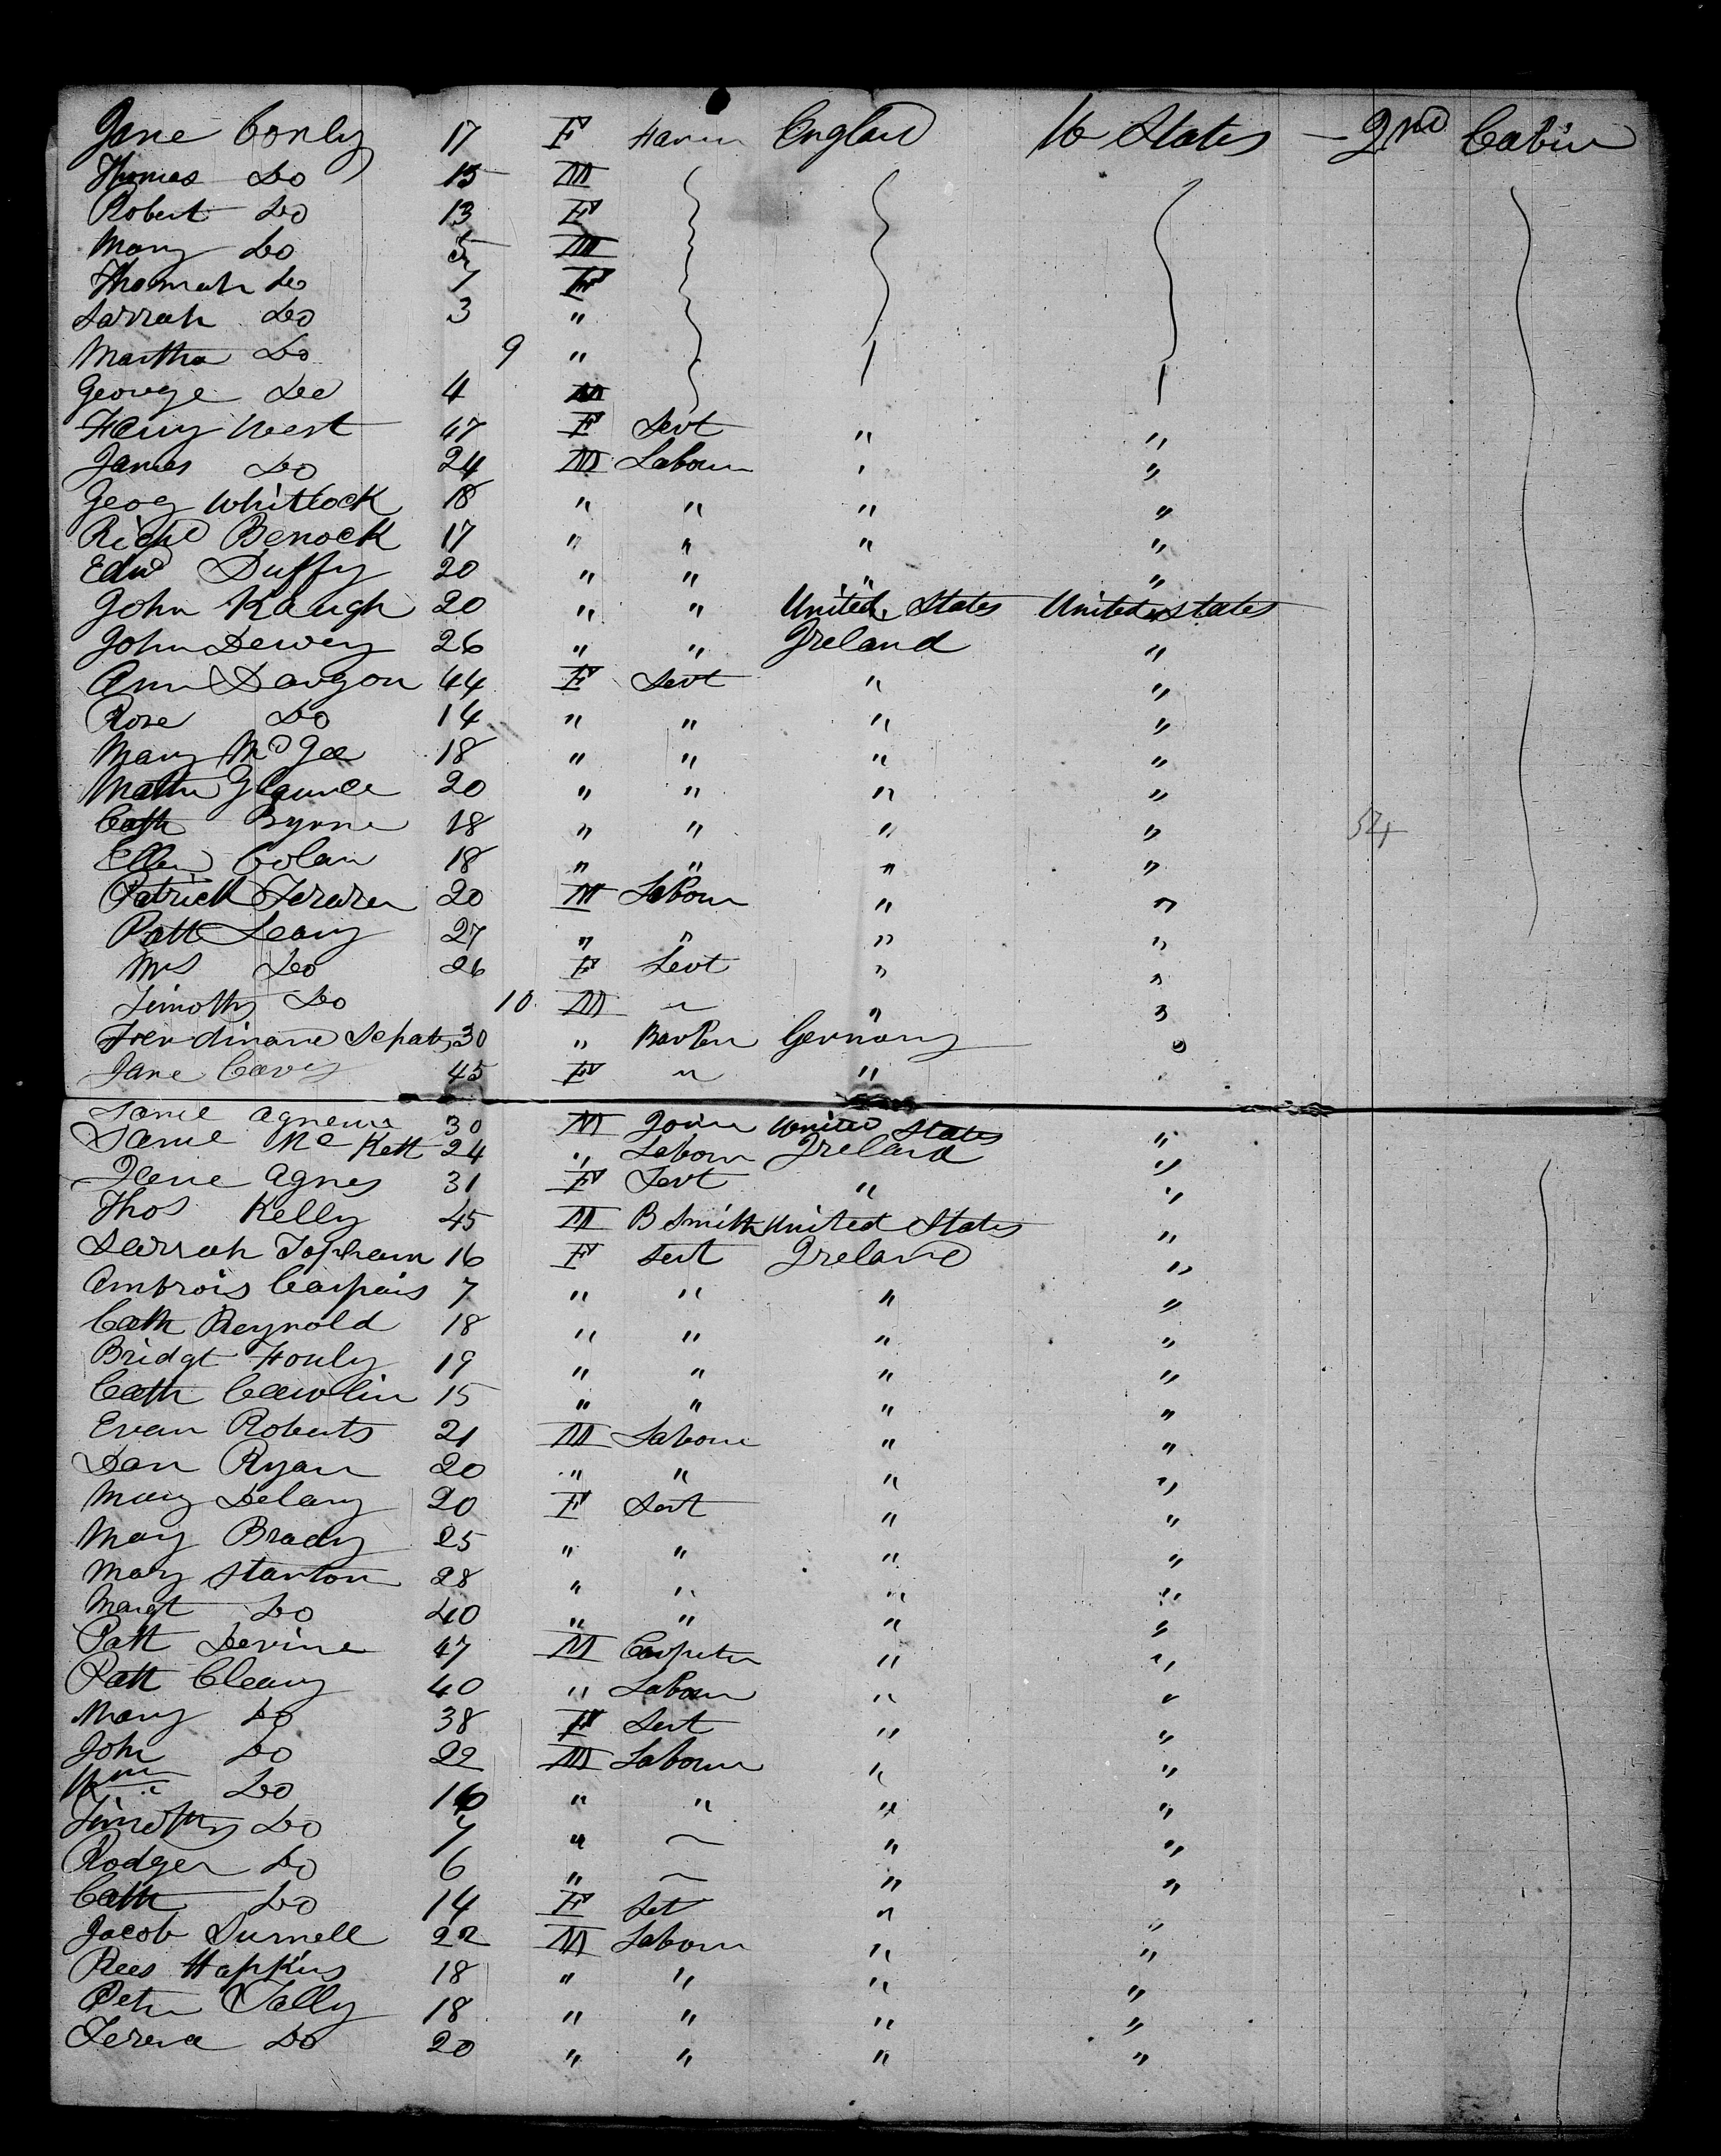 Jane Conly 17 F England U States — 2nd Cabin
Thomas Do 15 M
Robert Do 13 F
Mary Do 5 M
Thomah Do 7 F
Sarrah Do 3 "
Martha Do 9 "
George Do 4 M
Henry West 47 F Sevt " "
James Do 24 M Labour " "
Geog Whitlock 18 " " " "
Richd Benock 17 " " " "
Edwd Duffy 20 " " " "
John Kaugh 20 " " United States United States
John Dewey 26 " " Ireland "
Ann Davgon 44 F Sevt " "
Rose Do 14 " " " "
Mary McGee 18 " " " "
20 " " " "
Cath Byrne 18 " " " "
Ellen Colan 18 " " " "
Patrick 20 M Labour " "
Patt Leary 27 " " " "
Mrs Do 26 F Sevt " "
Timothy Do 10 M ~ " "
30 " Germany "
Jane 45 F ~ "
30 M United States "
Mc Kett 24 " Labour Ireland "
Agnes 31 F Sevt " "
Thos Kelly 45 M B Smith United States "
Sarrah Topham 16 F Sevt Ireland "
Ambrois Caspais 7 " " " "
Cath Reynold 18 " " " "
Bridgt Honly 19 " " " "
Cath Cawlin 15 " " " "
Evan Roberts 21 M Labour " "
Dan Ryan 20 " " " "
Mary Delany 20 F Sevt " "
Mary Brady 25 " " " "
Mary Stanton 28 " " " "
Margt Do 40 " " " "
Patt Devine 47 M Carpeter " "
Patt Cleary 40 " Labour " "
Mary Do 38 F Sevt " "
John Do 22 M Labour " "
Wm Do 16 " " " "
Timothy Do 7 " ~ " "
Rodger Do 6 " ~ " "
Cath Do 14 F Set " "
Jacob Durnell 22 M Labour " "
Rees Hopkins 18 " " " "
Peter Tally 18 " " " "
Do 20 " " " "